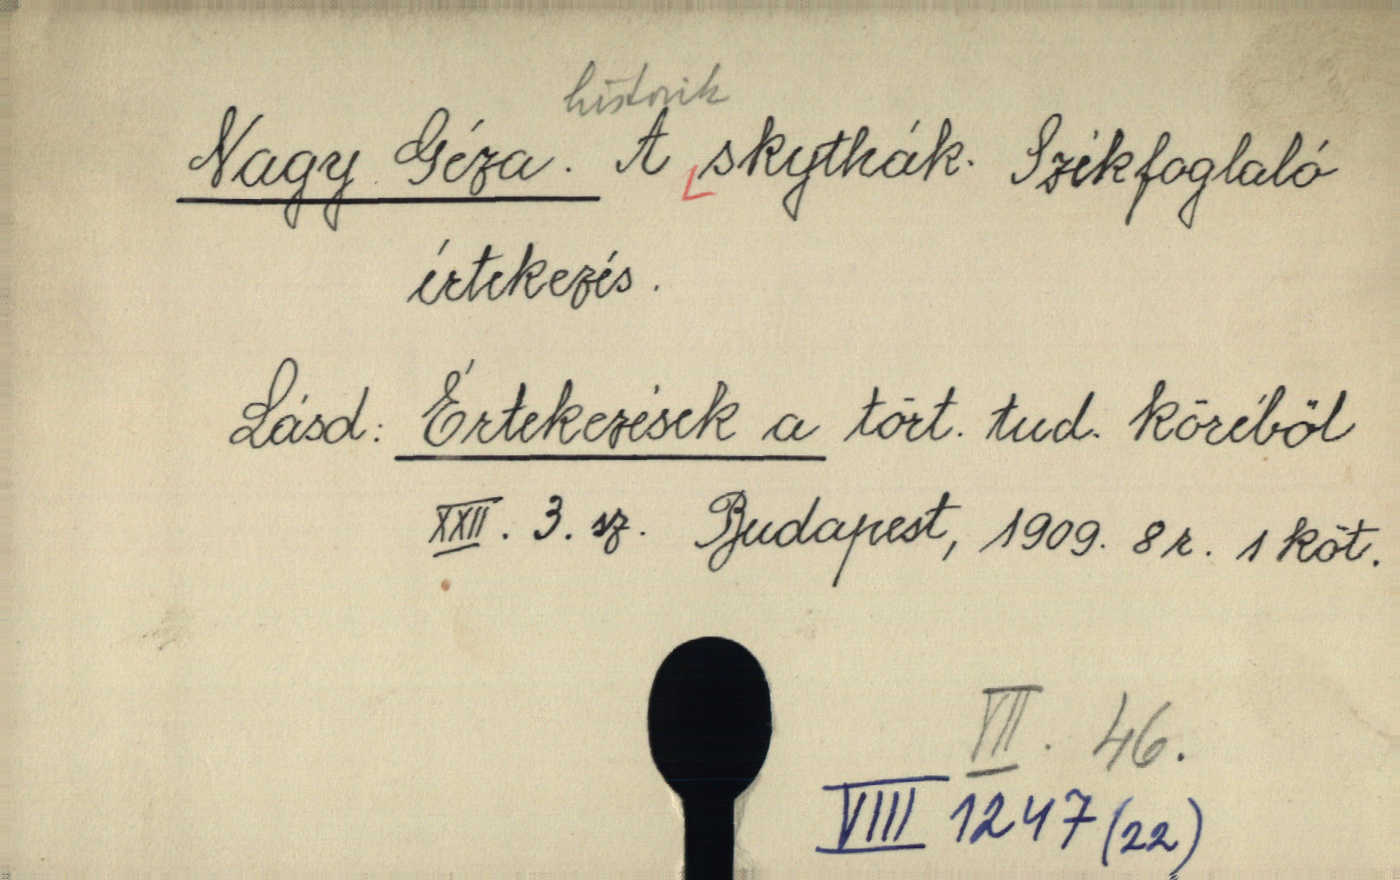 historik
Nagy Géza. A skythák. Székfoglaló
értekezés.
Lásd: Értekezések a tört. tud. köréből
XXII. 3. sz. Budapest, 1909. 8 r. 1 köt.
VII. 46.
VIII 1247 (22)